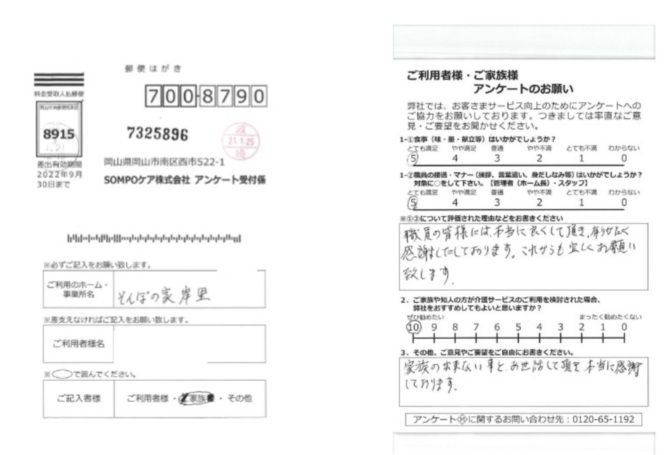 郵便はがき
料金受取人払郵便
700-8790
8915
7325896
差出有効期間
2022年9月
30日まで
岡山県岡山市南区西市522-1
SOMPOケア株式会社 アンケート受付係
※必ずご記入をお願い致します。
ご利用のホーム・
事業所名
そんぽの家 岸里
※差支えなければご記入をお願い致します。
ご利用者様名
※◯で囲んでください。
ご記入者様
ご利用者様・ご家族様・その他
ご利用者様・ご家族様
アンケートのお願い
弊社では、お客さまサービス向上のためにアンケートへの
ご協力をお願いしております。つきましては率直なご意
見・ご要望をお聞かせください。
1-①食事（味・量・献立等）はいかがでしょうか？
とても満足 やや満足 普通 やや不満 とても不満 わからない
5 4 3 2 1 0
1-②職員の接遇・マナー（挨拶、言葉遣い、身だしなみ等）はいかがでしょうか？
対象に○をして下さい。【管理者（ホーム長）・スタッフ】
とても満足 やや満足 普通 やや不満 とても不満 わからない
5 4 3 2 1 0
※①②について評価された理由などをお書きください
職員の皆様には本当に良くして頂き、有りがたく
感謝しております。これからも宜しくお願い
致します。
2．ご家族や知人の方が介護サービスのご利用を検討された場合、
弊社をおすすめしてもよいと思いますか？
ぜひ勧めたい まったく勧めたくない
10 9 8 7 6 5 4 3 2 1 0
3．その他、ご意見やご要望をご自由にお書きください。
家族の出来ない事と、お世話して頂き本当に感謝
しております。
アンケートに関するお問い合わせ先：0120-65-1192